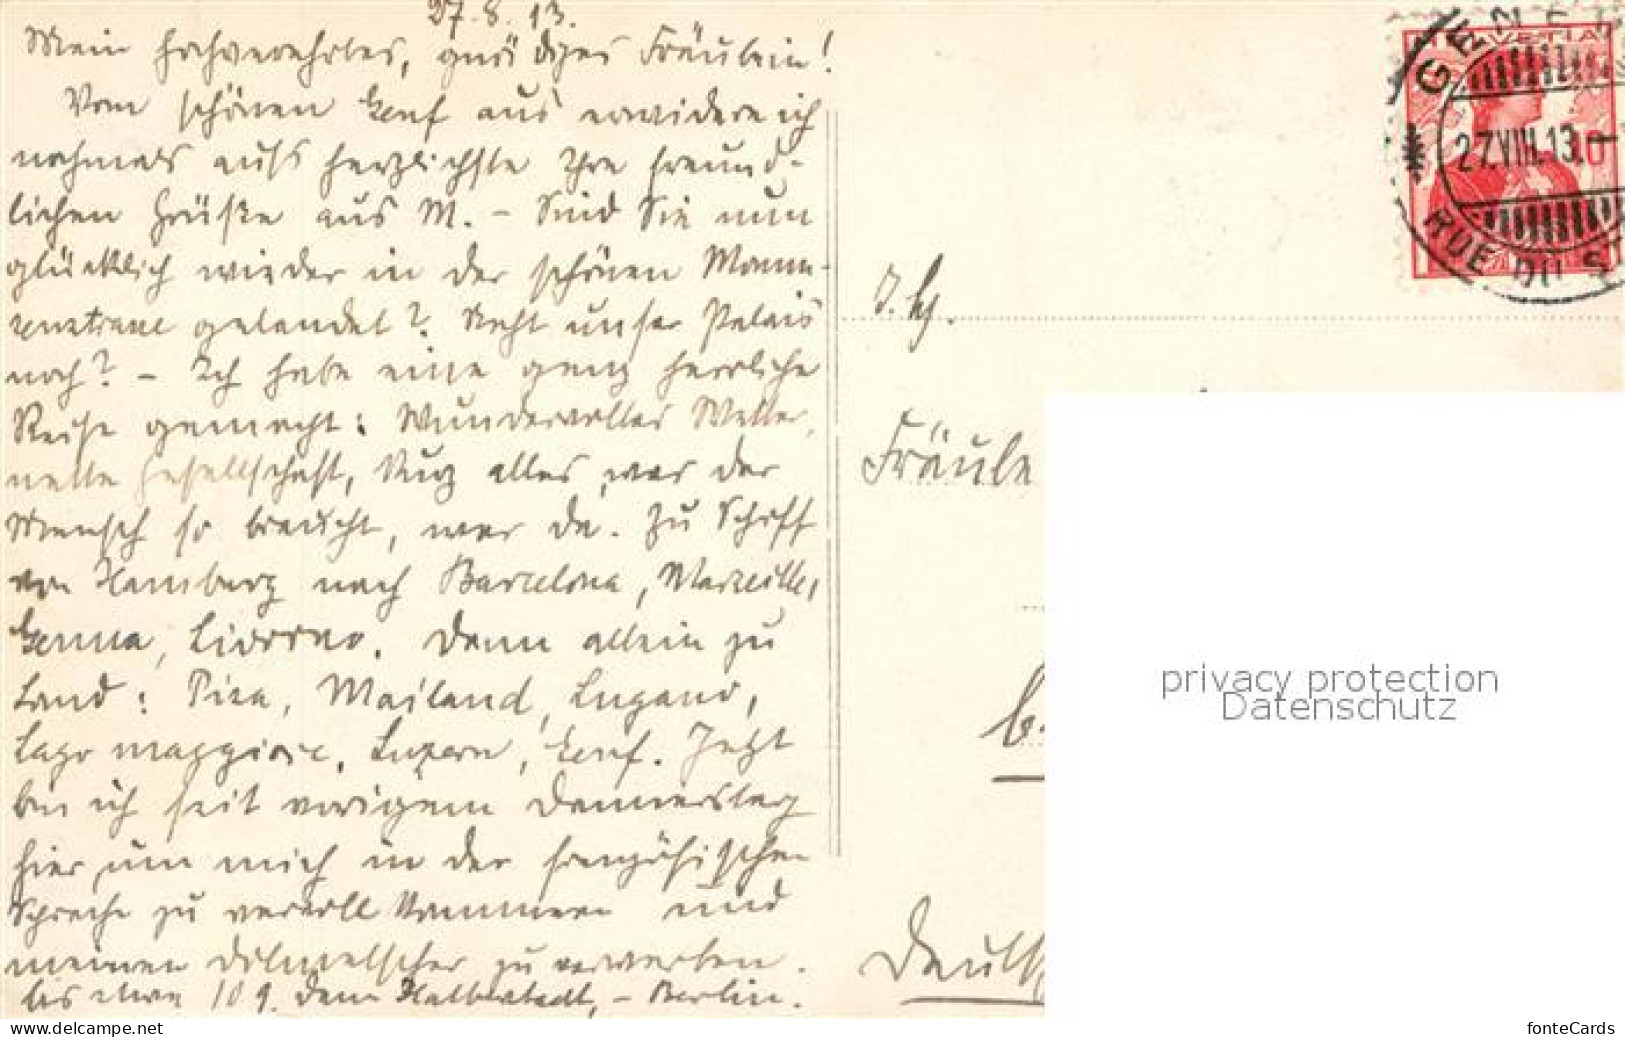 27.8.13.
Mein hochverehrtes, gnädiges Fräulein!
Vom schönen Genf aus erwidere ich
nochmals aufs herzlichste Ihre freund-
lichen Grüße aus M. - Sind Sie nun
glücklich wieder in der schönen
gelandet? Steht unser Palais
noch? - Ich habe eine ganz herrliche
Reise gemacht: Wundervolles Wetter,
nette Gesellschaft, kurz alles, was der
Mensch so braucht, war da. Zu Schiff
von Hamburg nach Barcelona, Marseille,
Genua, Livorno. Dann allein zu
Land: Pisa, Mailand, Lugano,
Lago maggiore, Luzern, Genf. Jetzt
bin ich seit vorigem Donnerstag
hier, um mich in der französischen
Sprache zu vervollkommnen und
meinen Dolmetscher zu erwerben.
bis etwa 10 9. dann Halberstadt, - Berlin.
GENEVE
HELVETIA
27.VIII.13.
10
RUE DU ST
Fräule
Deuts
privacy protection
Datenschutz
www.ansichtskarten-center.de
fonteCards